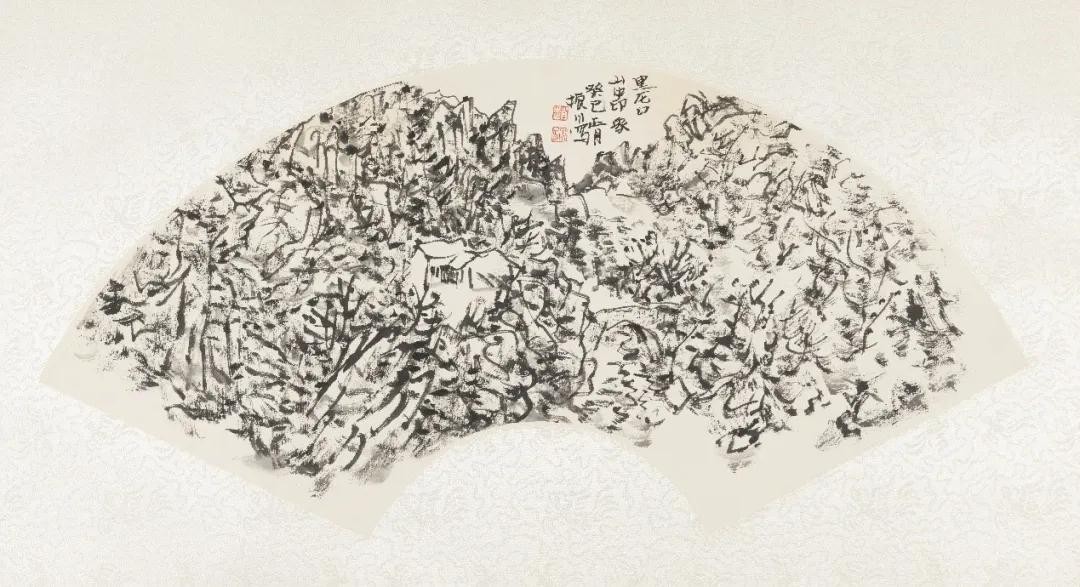 黑龙口
山中印象
癸巳正月
振川写